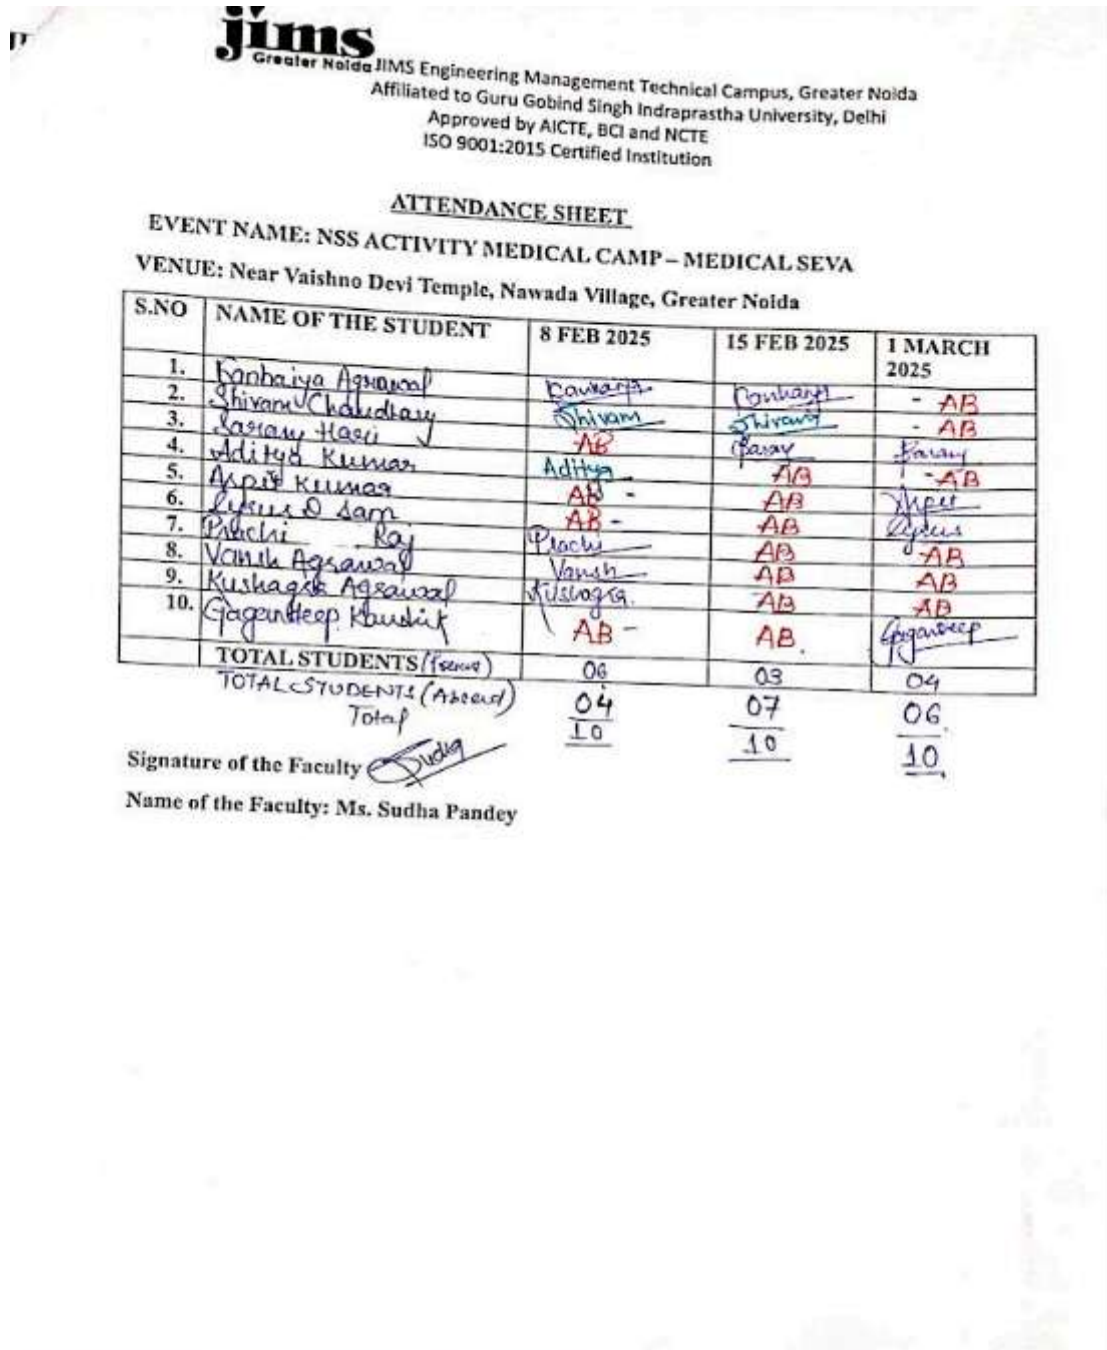 jims
Greater Noida JIMS Engineering Management Technical Campus, Greater Noida
Affiliated to Guru Gobind Singh Indraprastha University, Delhi
Approved by AICTE, BCI and NCTE
ISO 9001:2015 Certified Institution
ATTENDANCE SHEET
EVENT NAME: NSS ACTIVITY MEDICAL CAMP – MEDICAL SEVA
VENUE: Near Vaishno Devi Temple, Nawada Village, Greater Noida
S.NO NAME OF THE STUDENT 8 FEB 2025 15 FEB 2025 1 MARCH 2025
1. Kanhaiya Agrawal Kanhaiya Kanhaiya - AB
2. Shivam Chaudhary Shivam Shivam - AB
3. Sarany Hari AB Sarany Sarany
4. Aditya Kumar Aditya AB - AB
5. Arpit Kumar AB - AB Arpit
6. Cyrus D Sam AB - AB Cyrus
7. Prachi Raj Prachi AB AB
8. Vansh Agrawal Vansh AB AB
9. Kushagra Agrawal Kushagra. AB AB
10. Gagandeep Kaushik AB - AB. Gagandeep
TOTAL STUDENTS (Present) 06 03 04
TOTAL STUDENTS (Absent) 04 07 06
Total 10 10 10
Signature of the Faculty Sudha
Name of the Faculty: Ms. Sudha Pandey